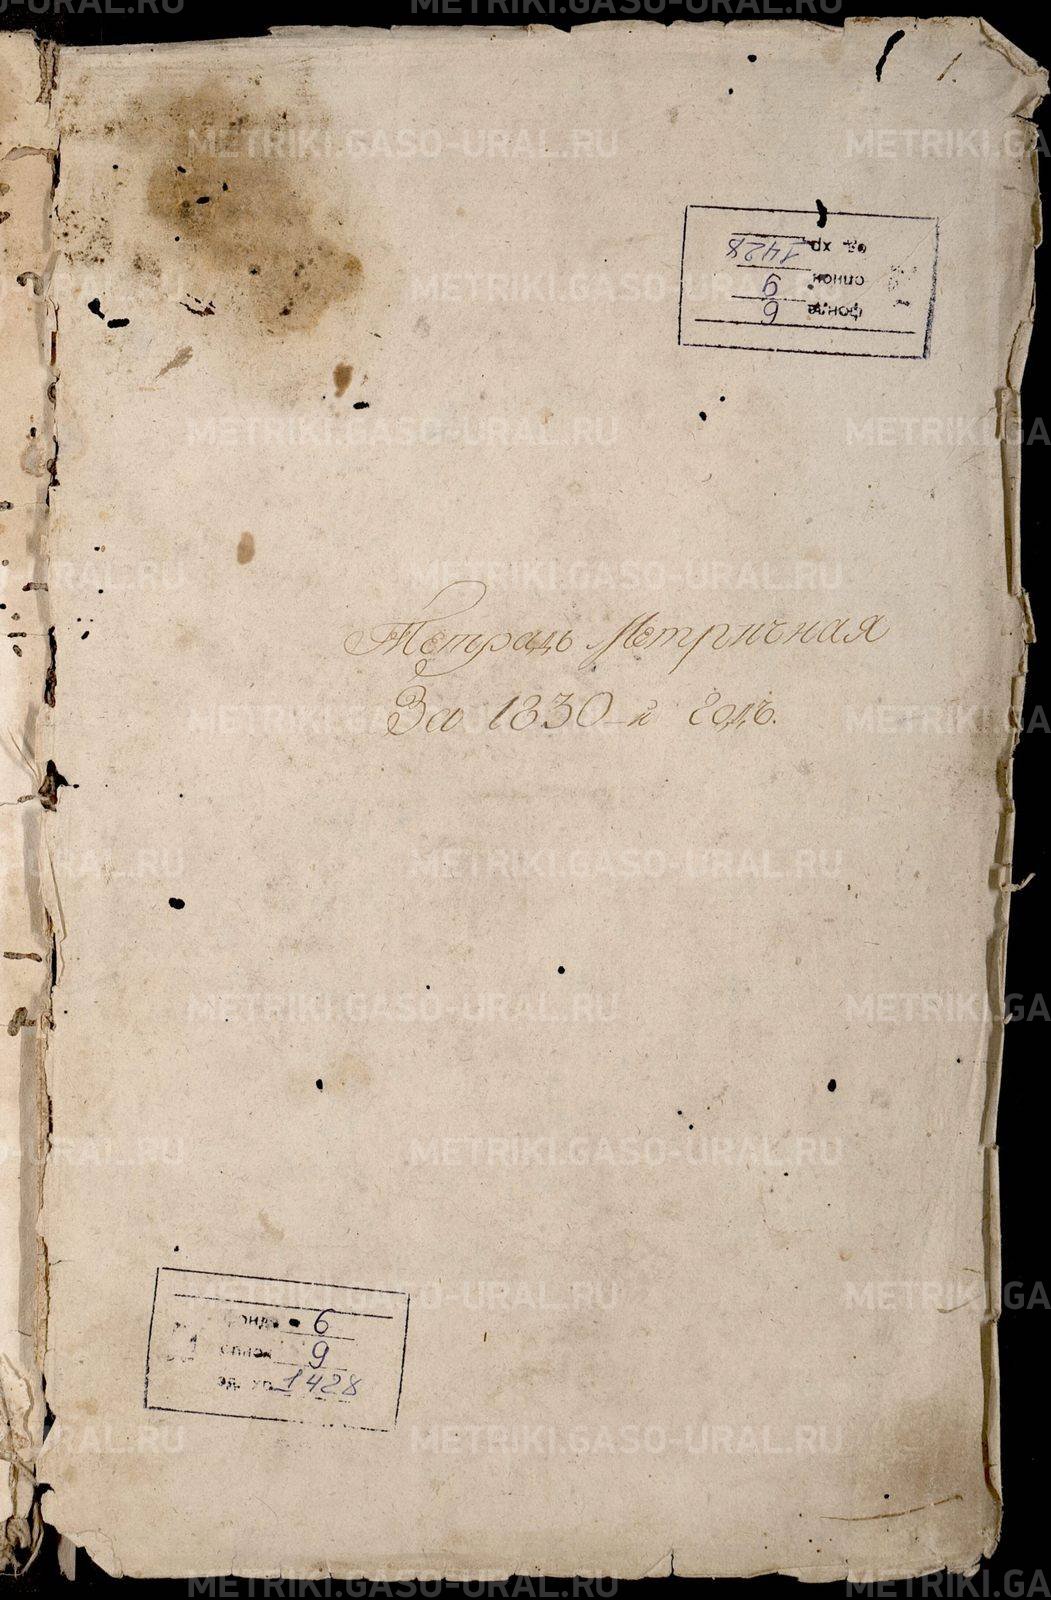 1.
ед. хр. 1428
опись 9
фонд 6
Тетрадь Метричная
За 1830-й годъ.
фонд 6
опись 9
ед. хр. 1428
METRIKI.GASO-URAL.RU